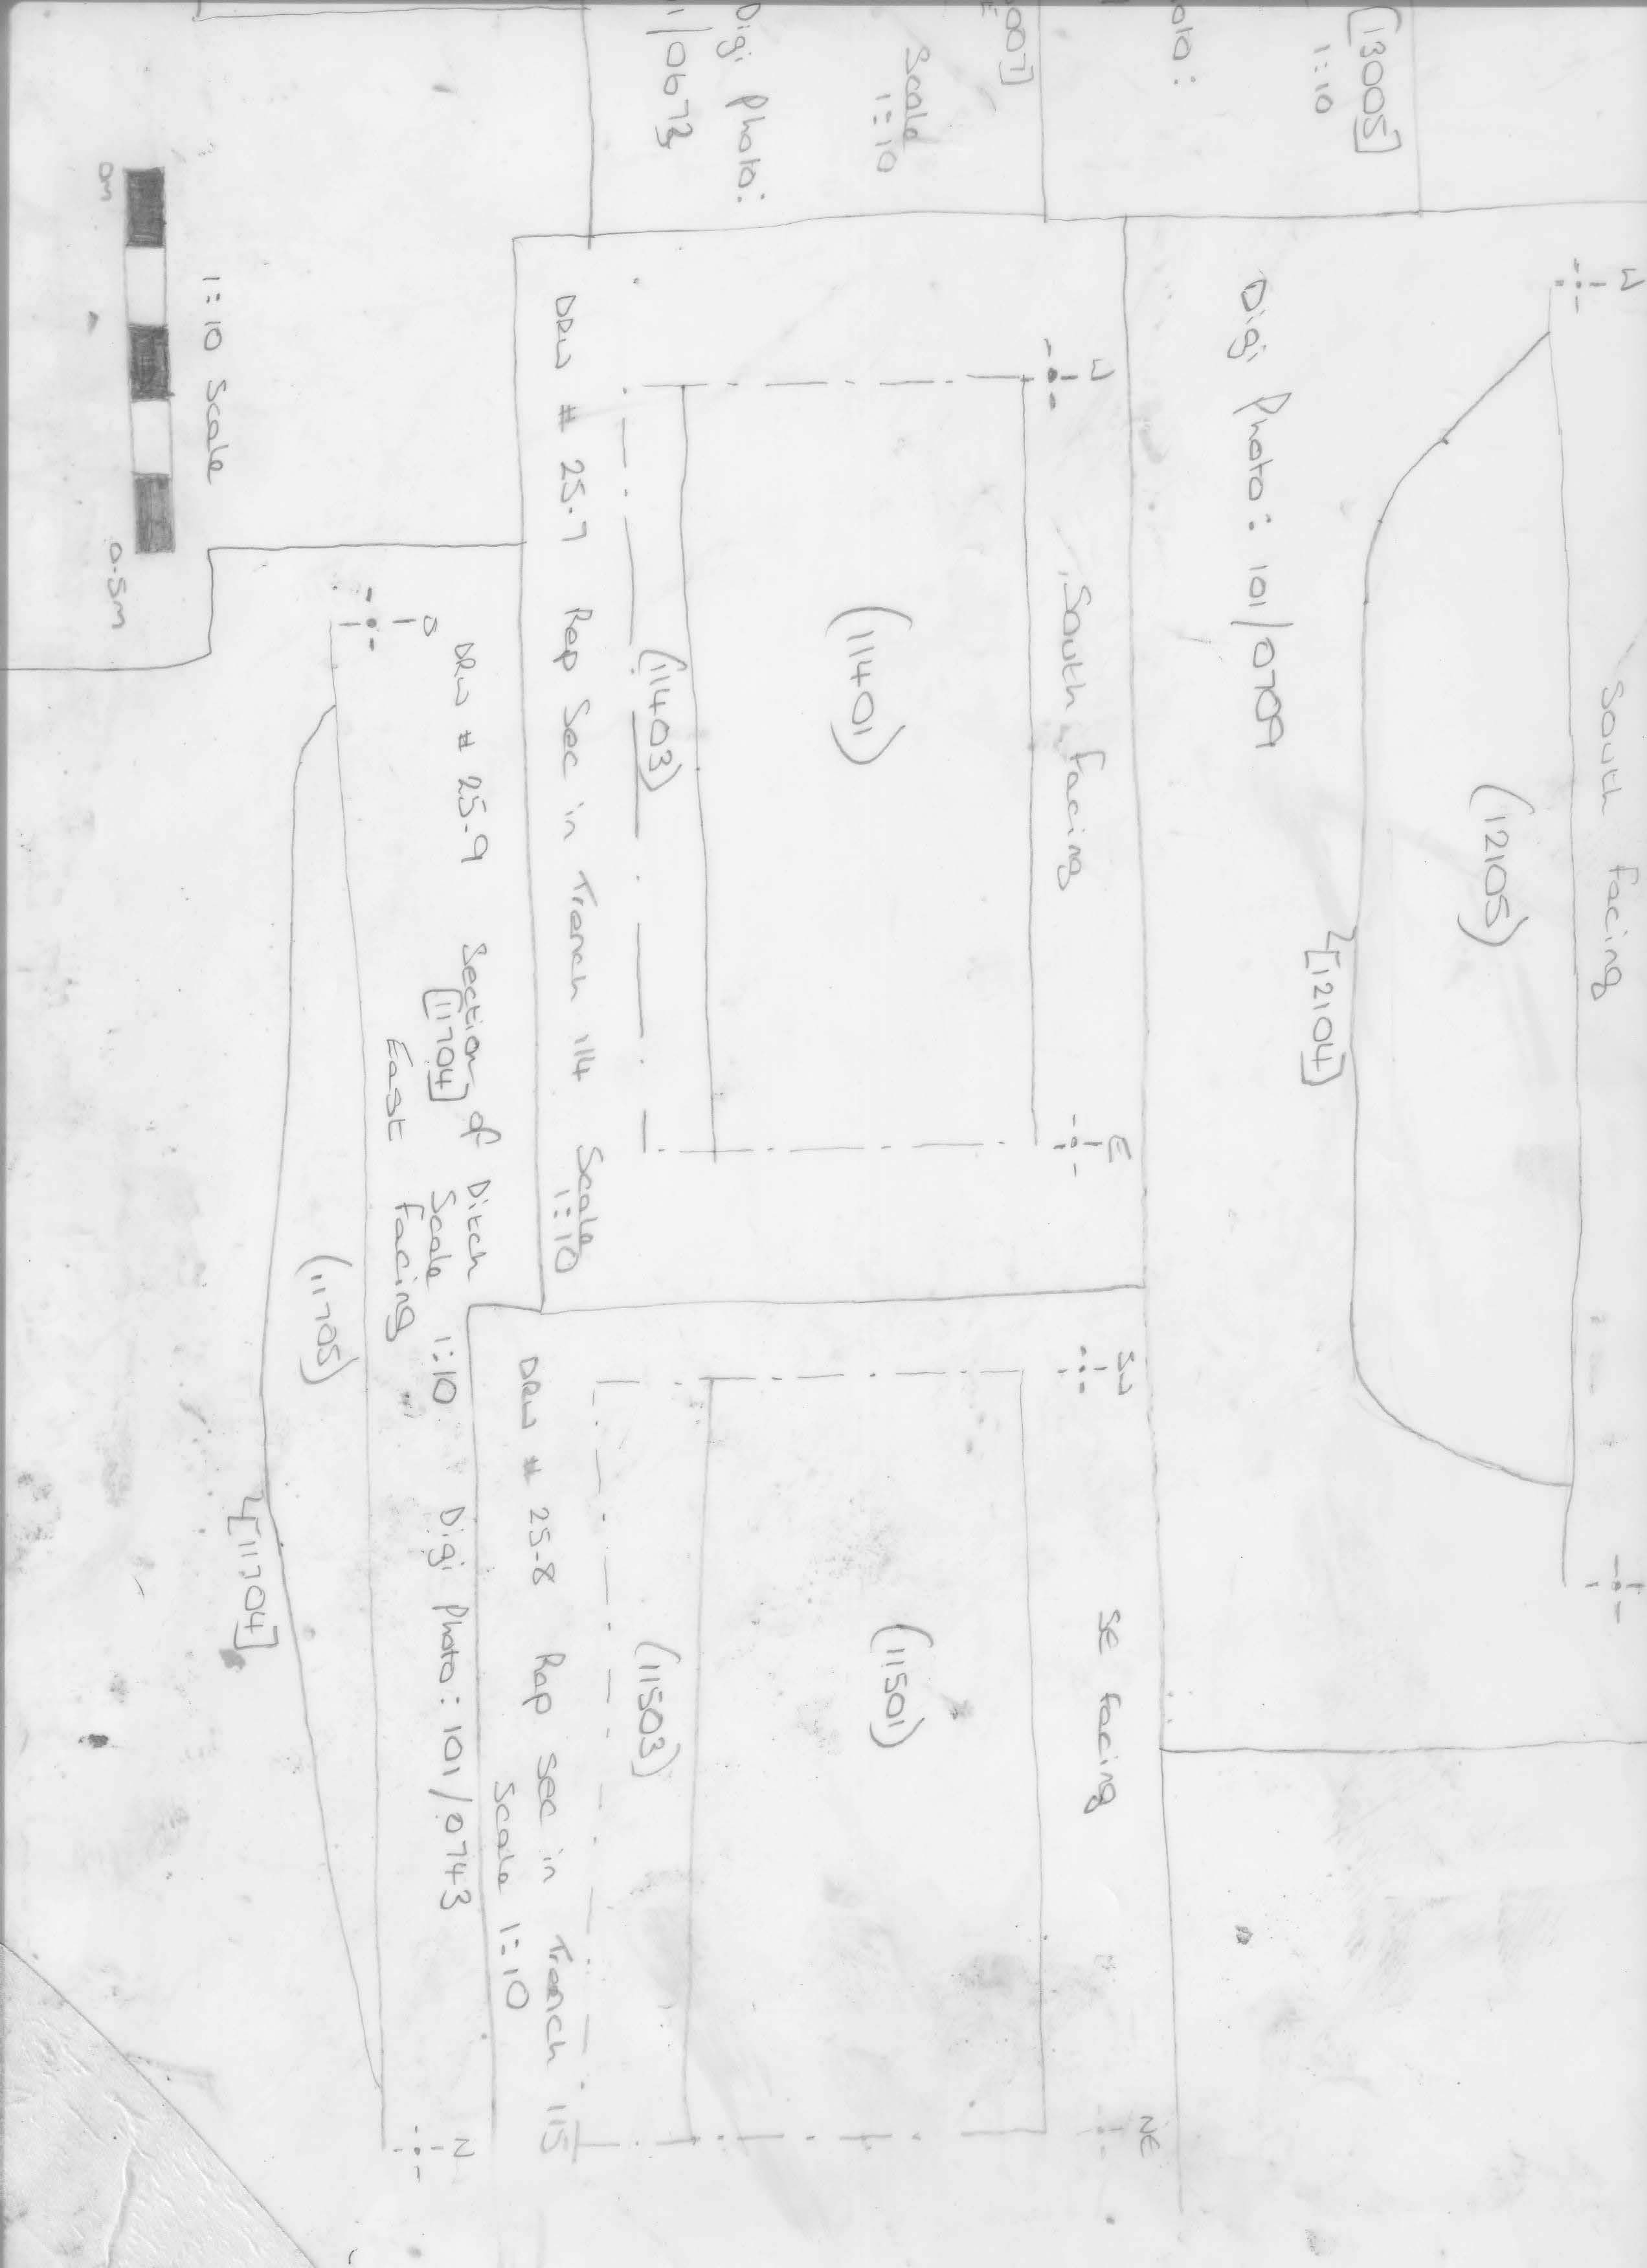 [13005]
1:10
oto:
007]
E
Scale
1:10
Digi Photo:
1/0673
W
South Facing
(12105)
[12104]
Digi Photo: 101/0709
W
E
South Facing
(11401)
(11403)
DRW # 25.7 Rep Sec in Trench 114 Scale
1:10
SW
NE
SE facing
(11501)
(11503)
DRW # 25.8 Rep Sec in Trench 115
Scale 1:10
DRW # 25.9 Section of Ditch
[11704] Scale 1:10 Digi Photo: 101/0743
East Facing
N
(11705)
[11704]
1:10 Scale
0m
0.5m